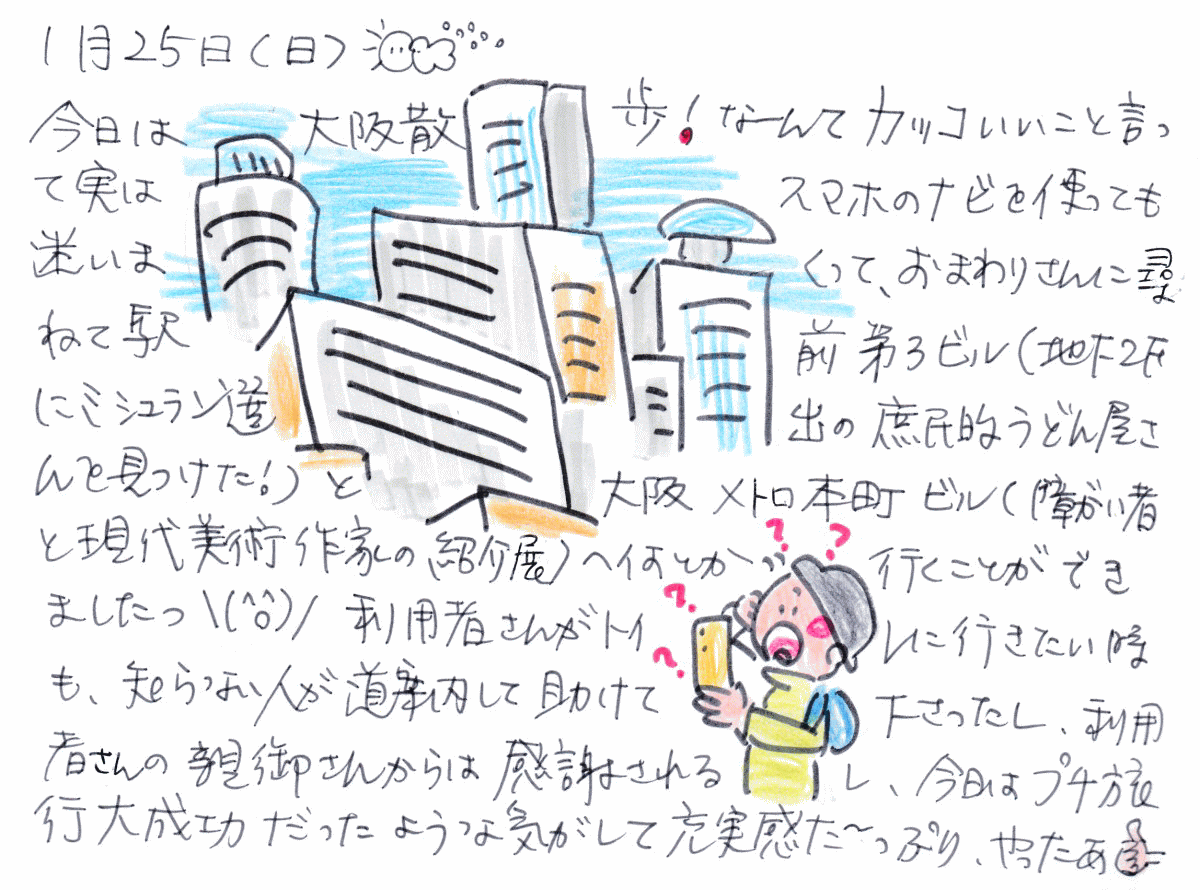 1月25日(日)
今日は大阪散歩!なーんてカッコいいこと言っ
て実はスマホのナビを使っても
迷いまくって、おまわりさんに尋
ねて駅前第3ビル(地下2F
にミシュラン選出の庶民的うどん屋さ
んを見つけた!)と大阪メトロ本町ビル(障がい者
と現代美術作家の紹介展)へなんとか行くことができ
ましたっ\(^o^)/利用者さんがトイレに行きたい時
も、知らない人が道案内して助けて下さったし、利用
者さんの親御さんからは感謝されるし、今日はプチ旅
行大成功だったような気がして充実感た〜っぷり、やったあ
????